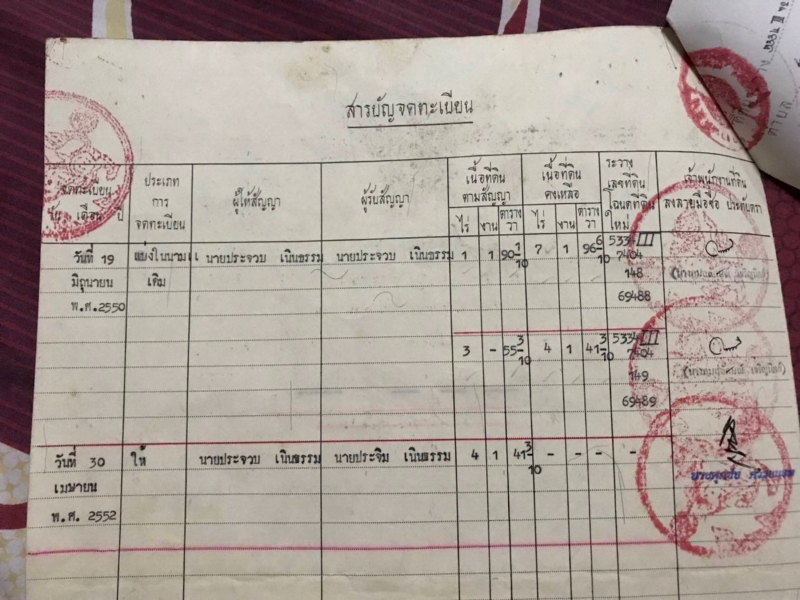 สารบัญจดทะเบียน
จดทะเบียน
วัน เดือน ปี
ประเภท
การ
จดทะเบียน
ผู้ให้สัญญา
ผู้รับสัญญา
เนื้อที่ดิน
ตามสัญญา
ไร่ งาน ตาราง
วา
เนื้อที่ดิน
คงเหลือ
ไร่ งาน ตาราง
วา
ระวาง
เลขที่ดิน
โฉนดที่ดิน
ใหม่
เจ้าพนักงานที่ดิน
ลงลายมือชื่อ ประทับตรา
วันที่ 19 แบ่งในนาม นายประจวบ เนินธรรม นายประจวบ เนินธรรม 1 1 90 1/10 7 1 96 6/10 5334 III
มิถุนายน เดิม 7404
พ.ศ.2550 148
69488
3 - 55 3/10 4 1 41 3/10 5334 III
7404
149
69489
วันที่ 30 ให้ นายประจวบ เนินธรรม นายประจิม เนินธรรม 4 1 41 3/10 - - - -
เมษายน
พ.ศ. 2552
ตำบล